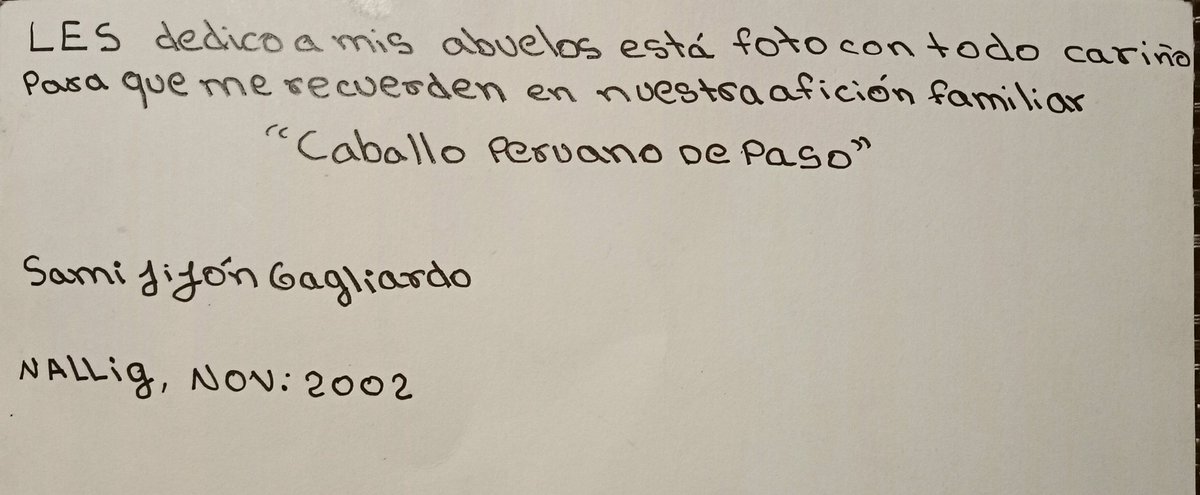 LES dedico a mis abuelos está foto con todo cariño
Para que me recuerden en nuestra afición familiar
"Caballo Peruano De Paso"
Sami Jijón Gagliardo
NALLig, NOV: 2002